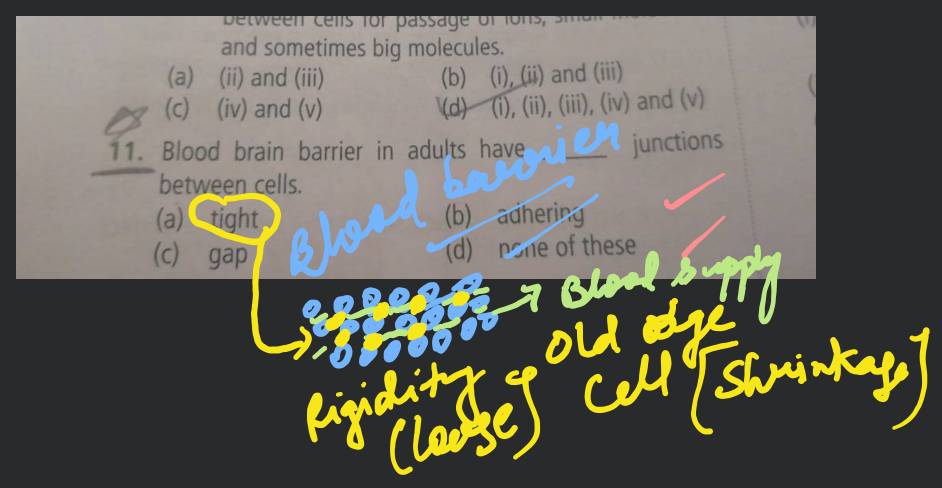 between cells for passage of ions, small
and sometimes big molecules.
(a) (ii) and (iii) (b) (i), (ii) and (iii)
(c) (iv) and (v) (d) (i), (ii), (iii), (iv) and (v)
11. Blood brain barrier in adults have ____ junctions
between cells.
(a) tight (b) adhering
(c) gap (d) none of these
Blood barrier
Blood supply
Rigidity
(loose)
Old edge
Cell [Shrinkage]